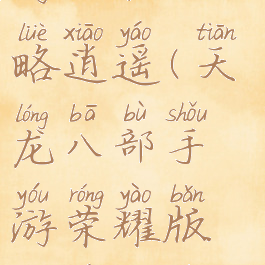 lüè xiāo yáo tiān
略逍遥(天
lóng bā bù shǒu
龙八部手
yóu róng yào bǎn
游荣耀版